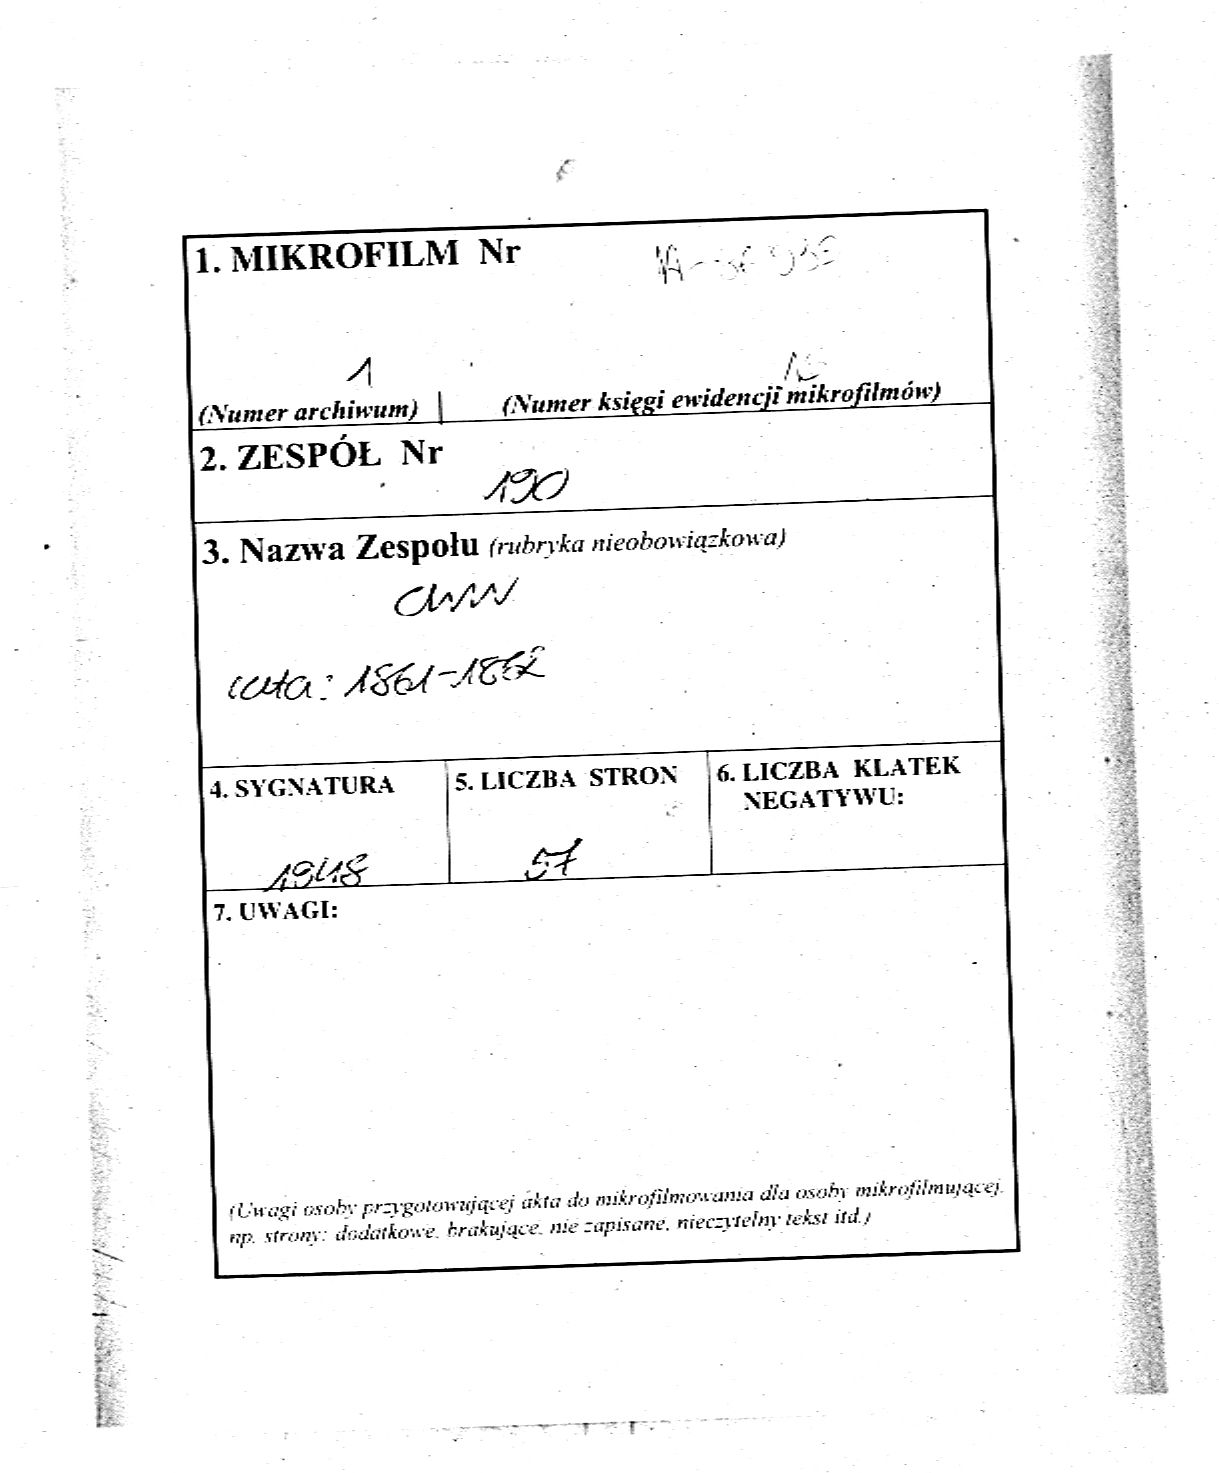 1. MIKROFILM Nr
1
(Numer archiwum) | (Numer księgi ewidencji mikrofilmów)
2. ZESPÓŁ Nr
190
3. Nazwa Zespołu (rubryka nieobowiązkowa)
CWW
lata: 1861-1862
4. SYGNATURA
5. LICZBA STRON
6. LICZBA KLATEK
NEGATYWU:
1948
57
7. UWAGI:
(Uwagi osoby przygotowującej akta do mikrofilmowania dla osoby mikrofilmującej,
np. strony: dodatkowe, brakujące, nie zapisane, nieczytelny tekst itd.)